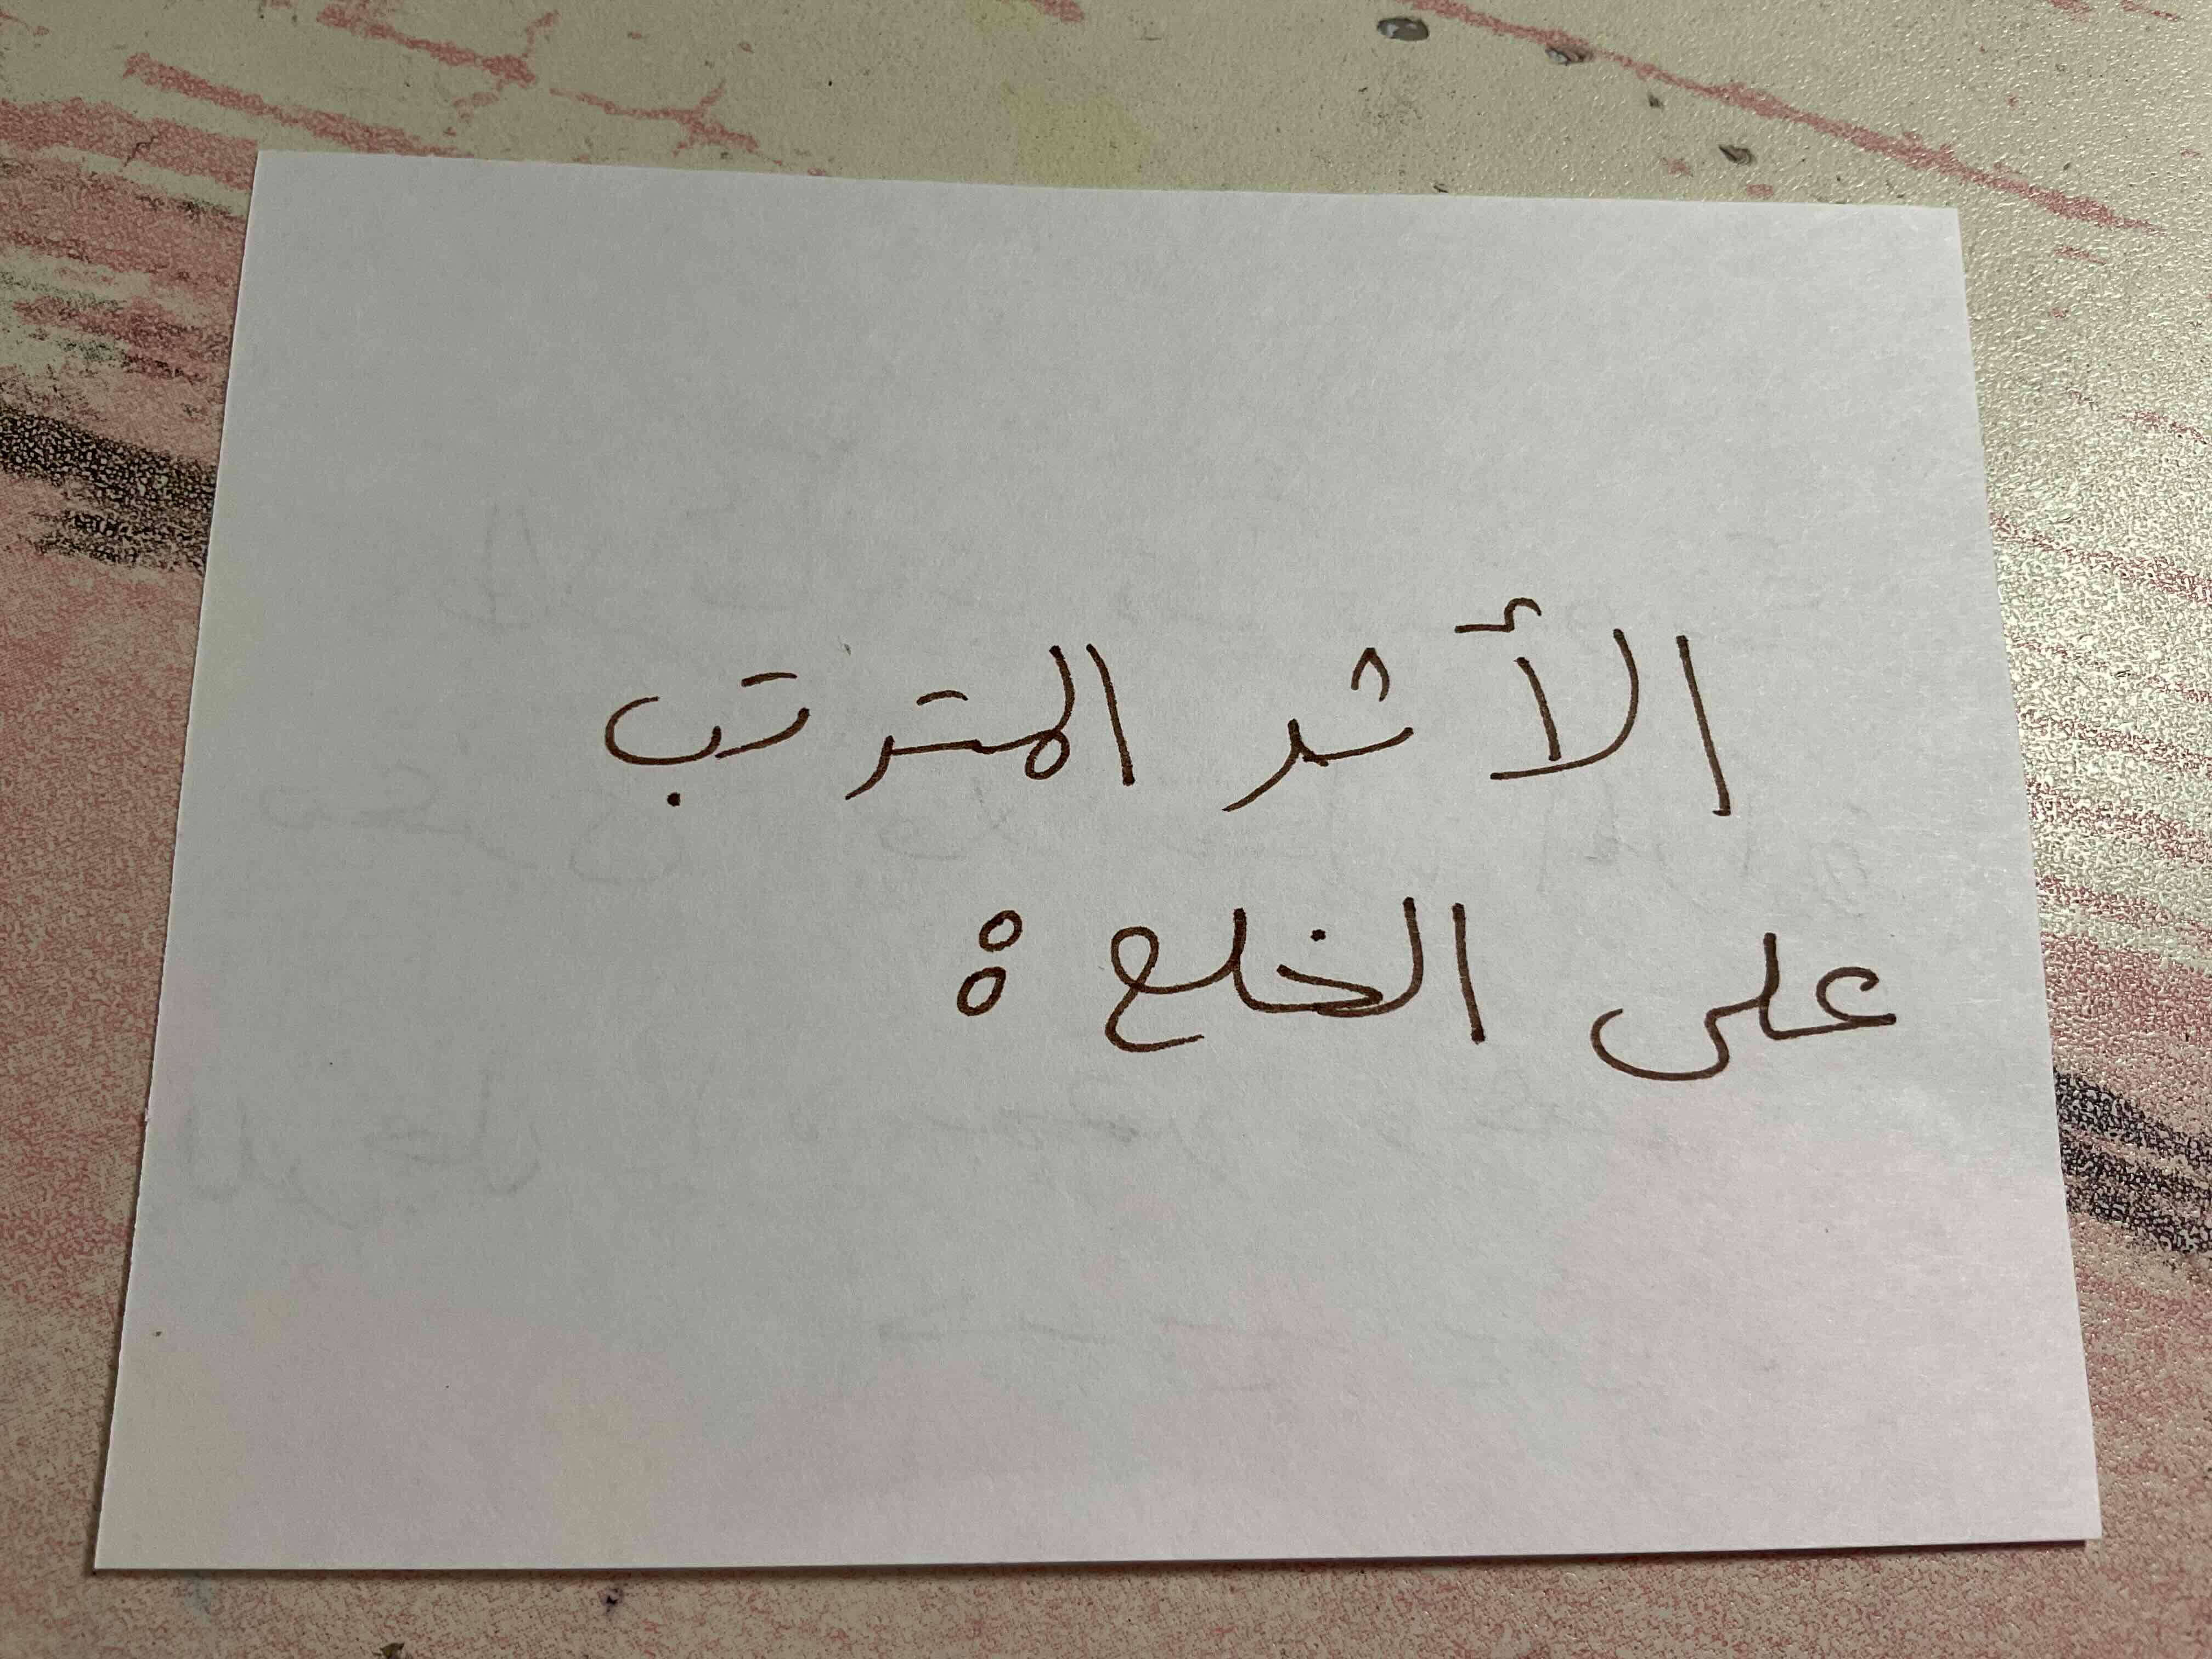 الأثر المترتب
على الخلع :